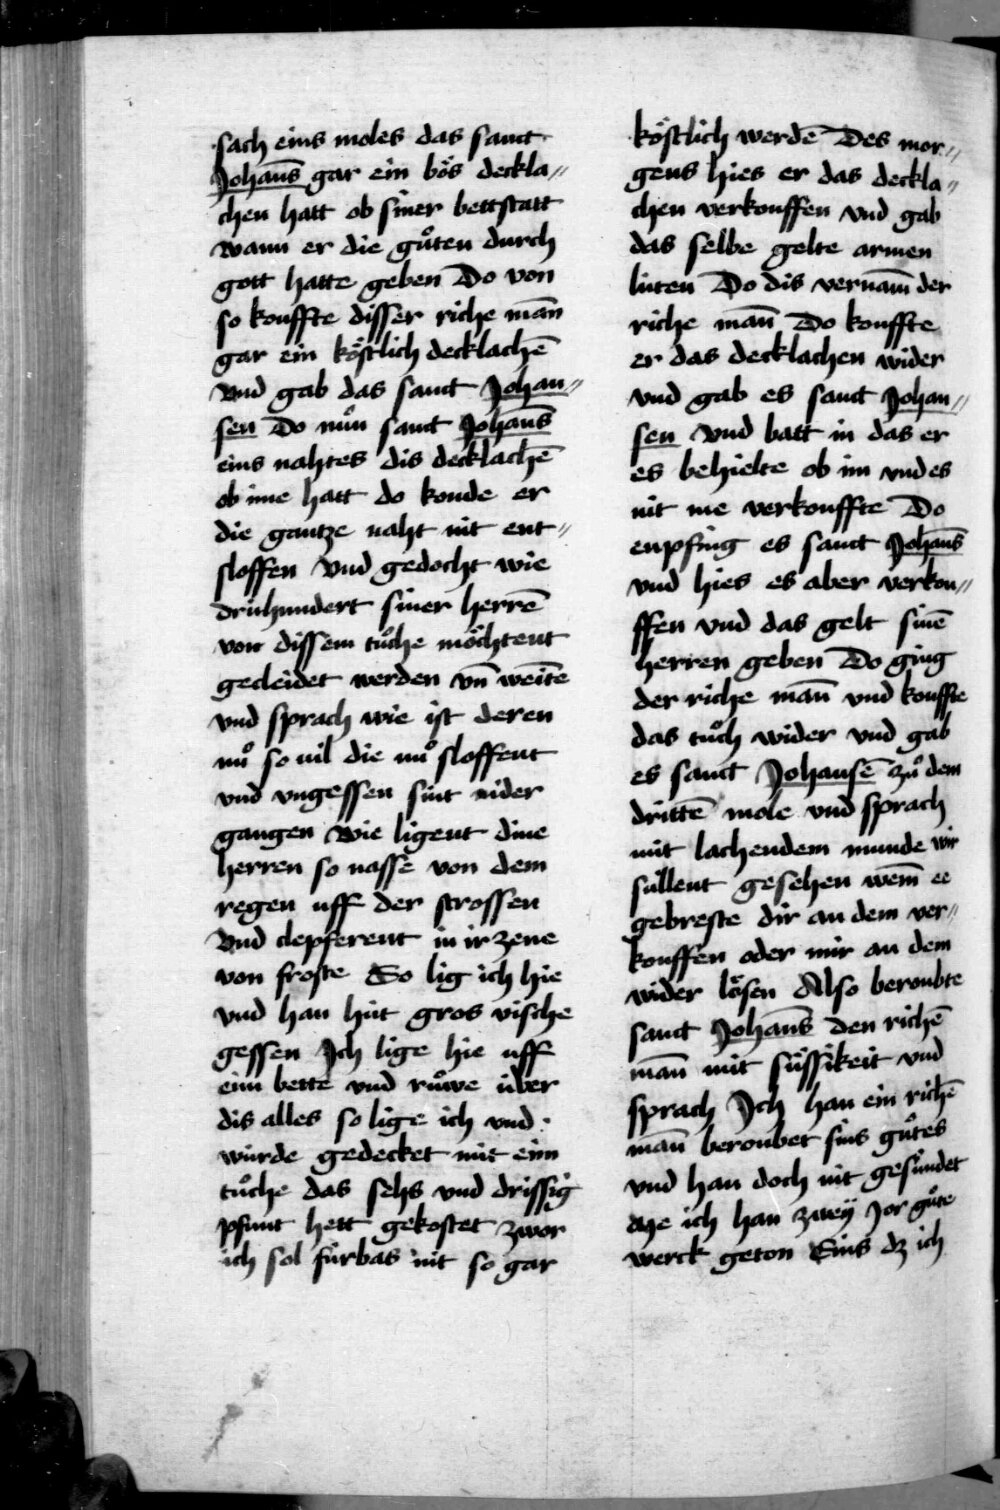 sach eins moles das sanct
Johañs gar ein bös deckla〃
chen hatt ob siner bettstatt
wann er die gůten durch
gott hatte geben Do von
so kouffte disser riche mañ
gar ein köstlich decklachē
Vnd gab das sanct Johan〃
sen Do nůn sanct Johañs
eins nahtes dis decklachē
ob ime hatt do konde er
die gantze naht nit ent〃
sloffen Vnd gedocht wie
drühundert siner herrē
von dissem tůche möchtent
gecleidet werden vñ weĩte
vnd sprach wie ist deren
nů so uil die nů sloffent
vnd vngessen sint nider
gangen Wie ligent dine
herren so nasse von dem
regen uff der strossen
Vnd clepferent in ir zene
von froste So lig ich hie
vnd han hüt gros vische
gessen Ich lige hie uff
eim bette vnd růwe über
dis alles so lige ich vnd
würde gedecket mit eim
tůche das sehs vnd drissig
pfunt hett gekostet zwor
ich sol fürbas nit so gar
köstlich werdē Des mor〃
gens hies er das deckla〃
chen verkouffen vnd gab
das selbe gelte armen
lüten Do dis vernam̄ der
riche mañ Do kouffte
er das decklachen wider
vnd gab es sanct Johan〃
sen Vnd batt in das er
es behielte ob im vnd es
nit me verkouffte Do
enpfing es sanct Johañs
vnd hies es aber verkou〃
ffen vnd das gelt sinē
herren geben Do ging
der riche mañ vnd kouffte
das tůch wider vnd gab
es sanct Johansē zů dem
drittē mole vnd sprach
mit lachendem munde wir
süllent gesehen wem̄ ee
gebreste dir an dem ver〃
kouffen oder mir an dem
wider lösen Also beroubte
sanct Johañs den richē
mañ mit süssikeit vnd
sprach Ich han ein richē
mañ beroubet sins gůtes
vnd han doch nit gesündet
Me ich han zwey Jor gůte
werck geton Eins dz ich